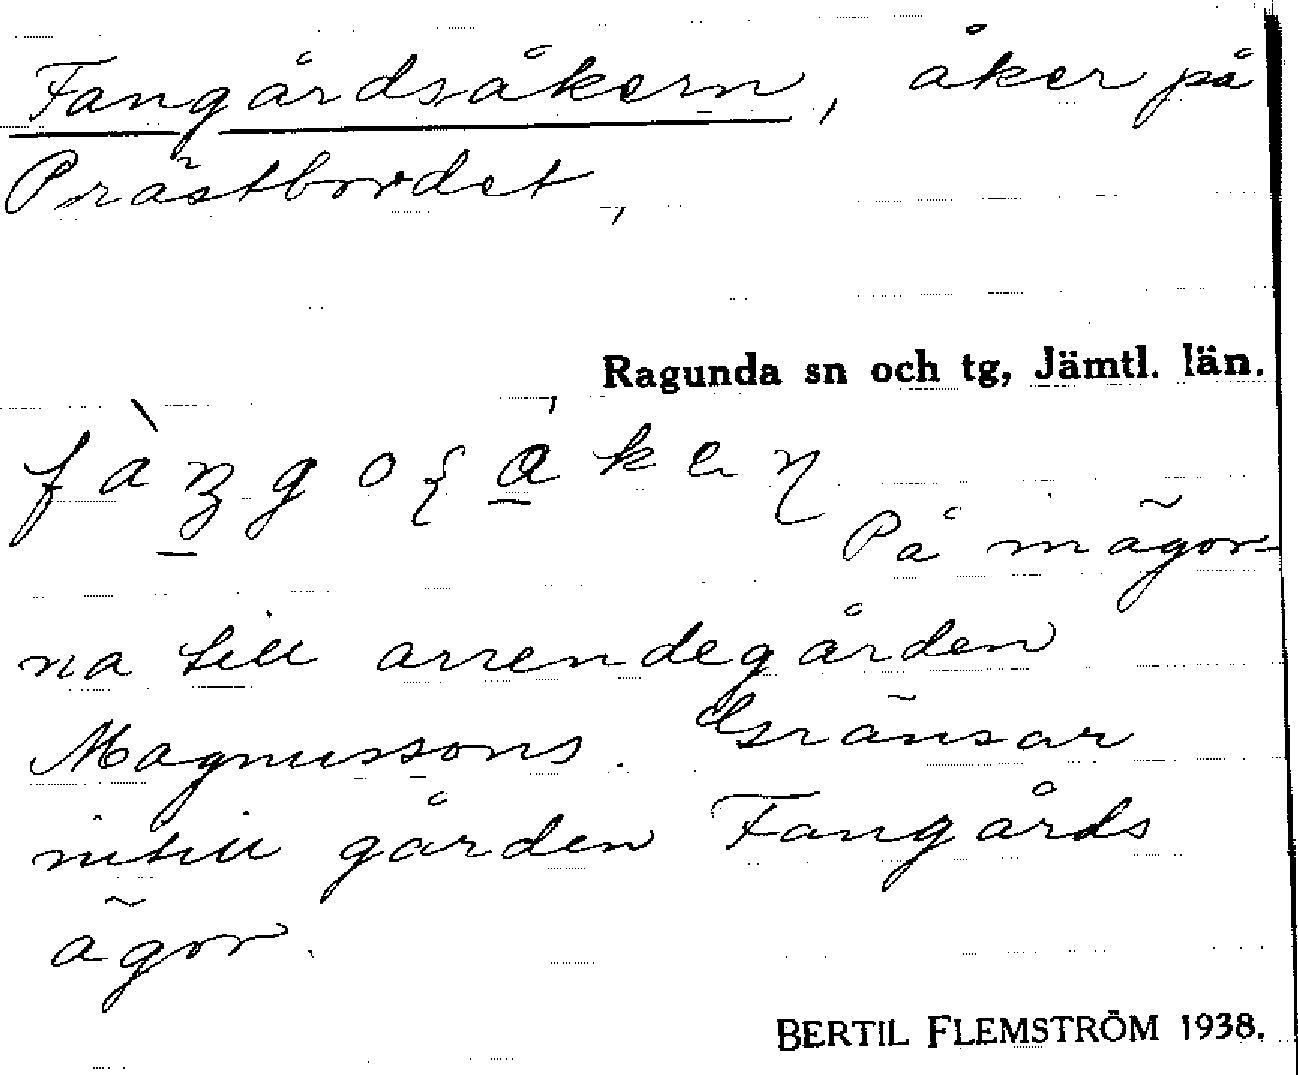 Fangårdsåkern, åker på
Prästbordet,
Ragunda sn och tg, Jämtl. län.
På mägor-
na till arrendegården
Magnussons. Gränsar
intill gården Fangårds
ägor.
BERTIL FLEMSTRÖM 1938.